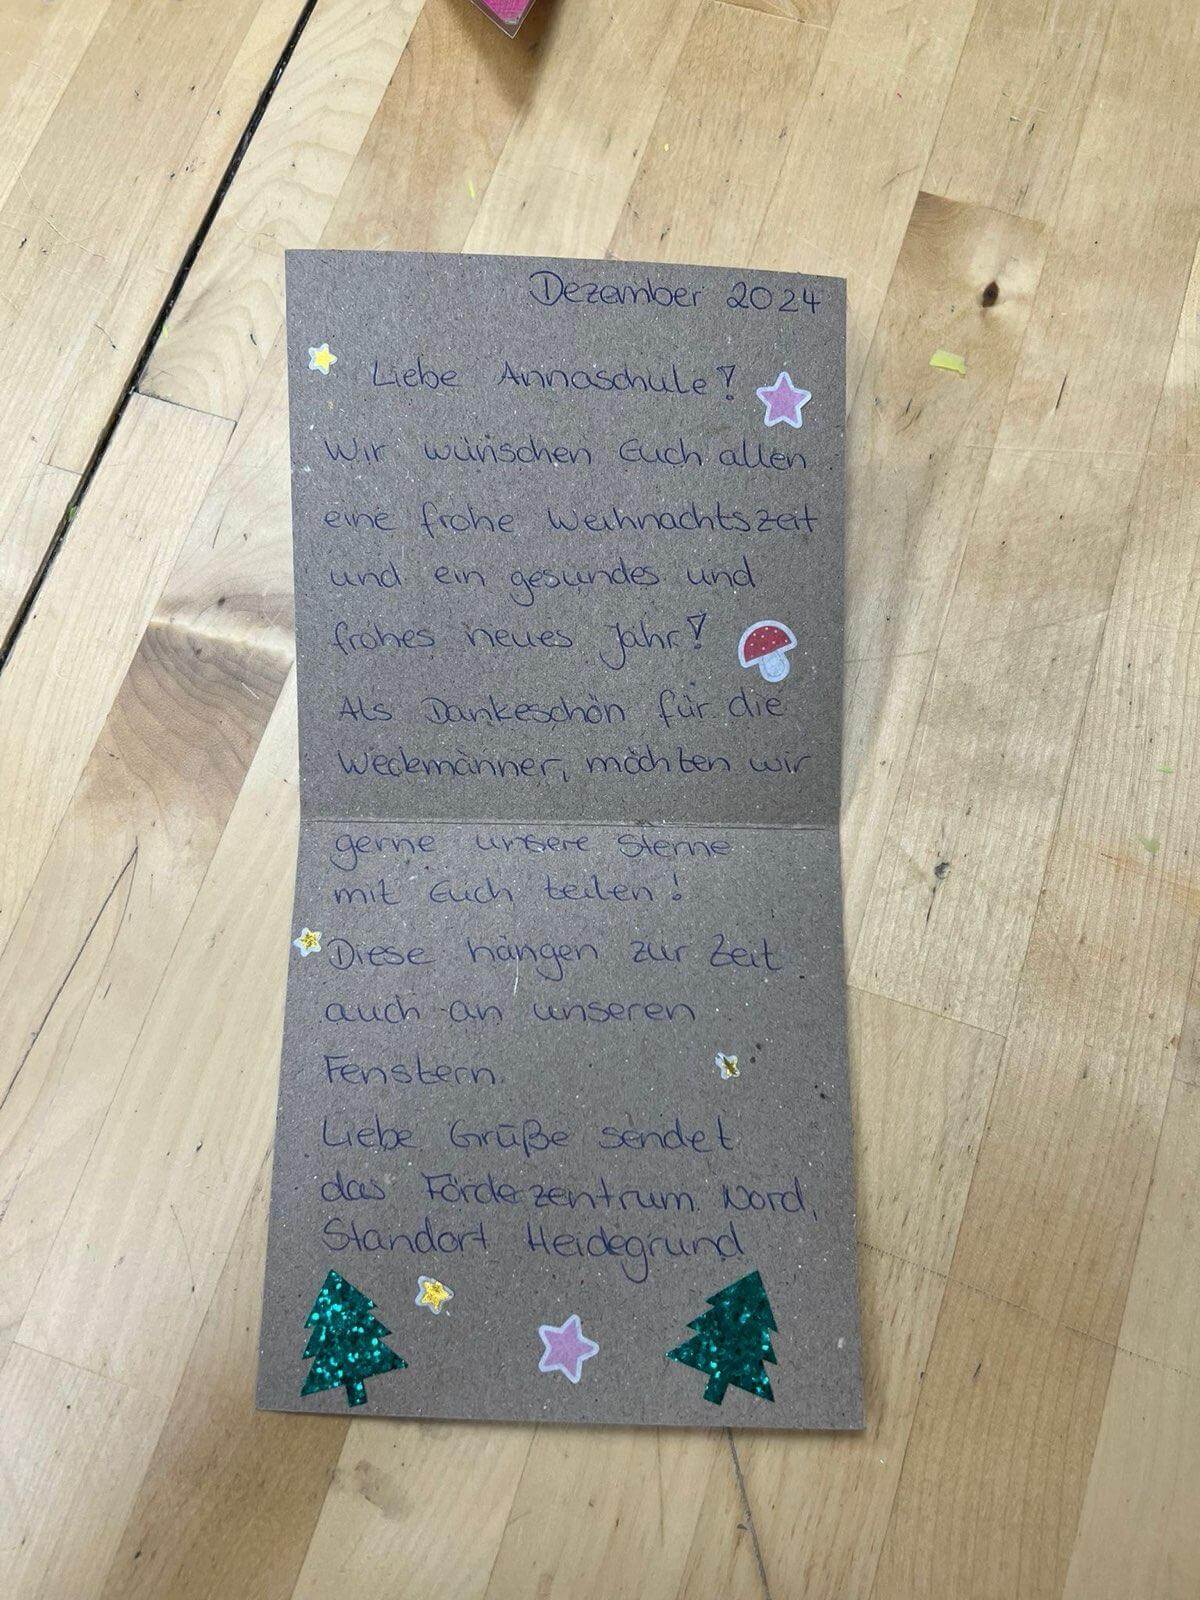 Dezember 2024
Liebe Annaschule!
Wir wünschen Euch allen
eine frohe Weihnachtszeit
und ein gesundes und
frohes neues Jahr!
Als Dankeschön für die
Weckmänner, möchten wir
gerne unsere Sterne
mit Euch teilen!
Diese hängen zur Zeit
auch an unseren
Fenstern.
Liebe Grüße sendet
das Förderzentrum Nord,
Standort Heidegrund